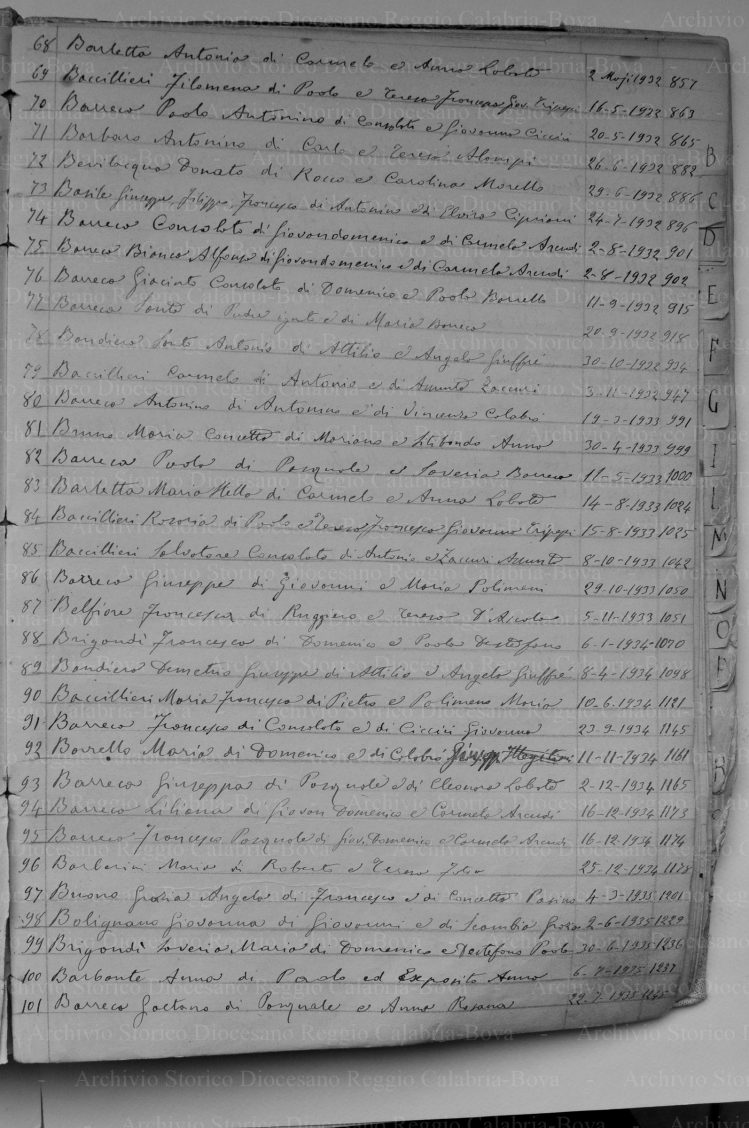 68 Barletta Antonia di Carmelo e Anna Lobate 2 Maji 1932 857
69 Baccillieri Filomena di Paolo e Teresa Francesca Giov. Tripepi 16-5-1932 863
70 Barreca Paolo Antonino di Consolato e Giovanna Ciccini 20-5-1932 865
71 Barbaro Antonino di Carlo e Teresa 26-6-1932 882
72 Bevilacqua Donato di Rocco e Carolina Morello 29-6-1932 886
73 Basile Giuseppe, Filippo, Francesco di Antonino e di Elvira Cipriani 24-7-1932 896
74 Barreca Consolato di Giovandomenico e di Carmela Arcudi 2-8-1932 901
75 Barreca Bianca Alfonsa di Giovandomenico e di Carmela Arcudi 2-8-1932 902
76 Barreca Giacinto Consolato di Domenico e Paola Borrello 11-9-1932 915
77 Barreca Santo di Padre ignoto e di Maria Barreca 20-9-1932 918
78 Bandiera Santo Antonio di Attilio e Angela Giuffrè 30-10-1932 934
79 Baccillieri Carmelo di Antonio e di Assunta Zaccuri 3-11-1932 947
80 Barreca Antonino di Antonino e di Vincenza Calabrò 19-3-1933 991
81 Bruno Maria Concetta di Mariano e Anna 30-4-1933 999
82 Barreca Paolo di Pasquale e Saveria Barreca 11-5-1933 1000
83 Barletta Maria Stella di Carmelo e Anna Lobate 14-8-1933 1024
84 Baccillieri Rosaria di Paolo e Teresa Francesca Giovanna Tripepi 15-8-1933 1025
85 Baccillieri Salvatore Consolato di Antonio e Zaccuri Assunta 8-10-1933 1042
86 Barreca Giuseppe di Giovanni e Maria Polimeni 29-10-1933 1050
87 Belfiore Francesca di Ruggiero e Teresa D'Ascola 5-11-1933 1051
88 Brigandì Francesca di Domenico e Paola Destefano 6-1-1934 1070
89 Bandiera Demetrio Giuseppe di Attilio e Angela Giuffrè 8-4-1934 1098
90 Baccillieri Maria Francesca di Pietro e Polimeno Maria 10-6-1934 1121
91 Barreca Francesco di Consolato e di Ciccini Giovanna 23-9-1934 1145
92 Borrello Maria di Domenico e di Calabrò 11-11-1934 1161
93 Barreca Giuseppa di Pasquale e di Eleonora Lobate 2-12-1934 1165
94 Barreca Liliana di Giovan Domenico e Carmela Arcudi 16-12-1934 1173
95 Barreca Francesco Pasquale di Giov. Domenico e Carmela Arcudi 16-12-1934 1174
96 Barbarini Maria di Roberto e Teresa 25-12-1934 1178
97 Buono Grazia Angela di Francesco e di Concetta 4-3-1935 1201
98 Bolignano Giovanna di Giovanni e di Scambia Grazia 2-6-1935 1229
99 Brigandì Saveria Maria di Domenico e Destefano Paola 30-6-1935 1236
100 Barbante Anna di Paolo ed Esposito Anna 6-7-1935 1237
101 Barreca Gaetano di Pasquale e Anna Rosana 22-7-1935
B
C
D
E
F
G
I
L
M
N
O
P
R
Archivio Storico Diocesano Reggio Calabria-Bova